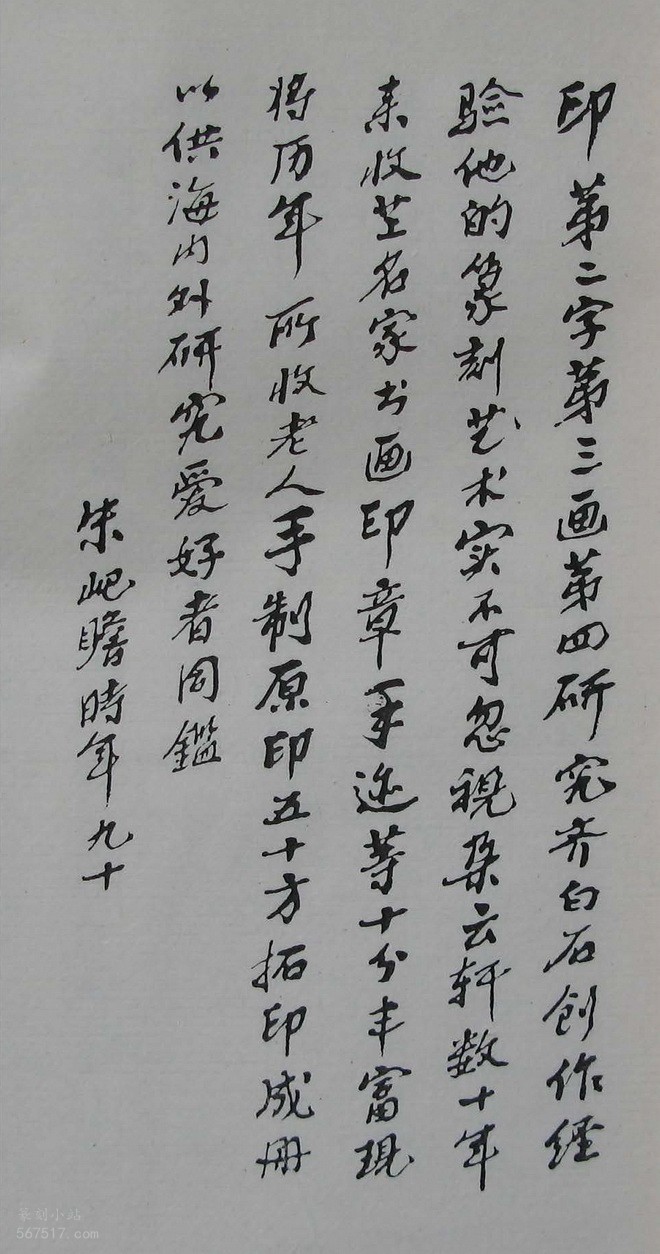 印第二字第三画第四研究齐白石创作经
验他的篆刻艺术实不可忽视朵云轩数十年
来收芷名家书画印章手迹等十分丰富现
将历年所收老人手制原印五十方拓印成册
以供海内外研究爱好者同鑑
朱屺瞻時年九十
篆刻小站
567517.com